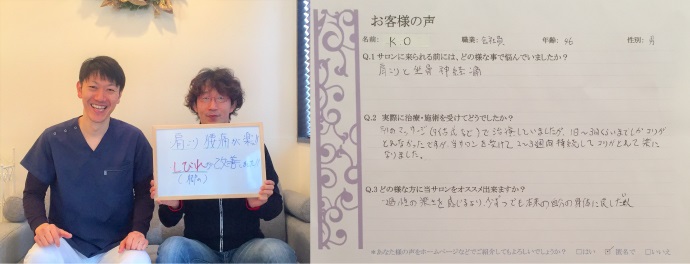 肩こり 腰痛が楽に
しびれが改善しました
お客様の声
名前: K O 職業: 会社員 年齢: 46 性別: 男
Q.1 サロンに来られる前には、どの様な事で悩んでいましたか?
肩こりと坐骨神経痛
Q.2 実際に治療・施術を受けてどうでしたか?
別のマッサージ(もみほぐしなど)で治療していましたが、1日〜3日くらいまでしかコリが
とれなかったですが、当サロンを受けて2〜3週間持続してコリがとれて楽に
なりました。
Q.3 どの様な方に当サロンをオススメ出来ますか?
一過性の楽さを感じるより、少しずつでも本来の自分の身体に戻したい人
*あなた様の声をホームページなどでご紹介してもよろしいでしょうか? □はい ☑匿名で □いいえ